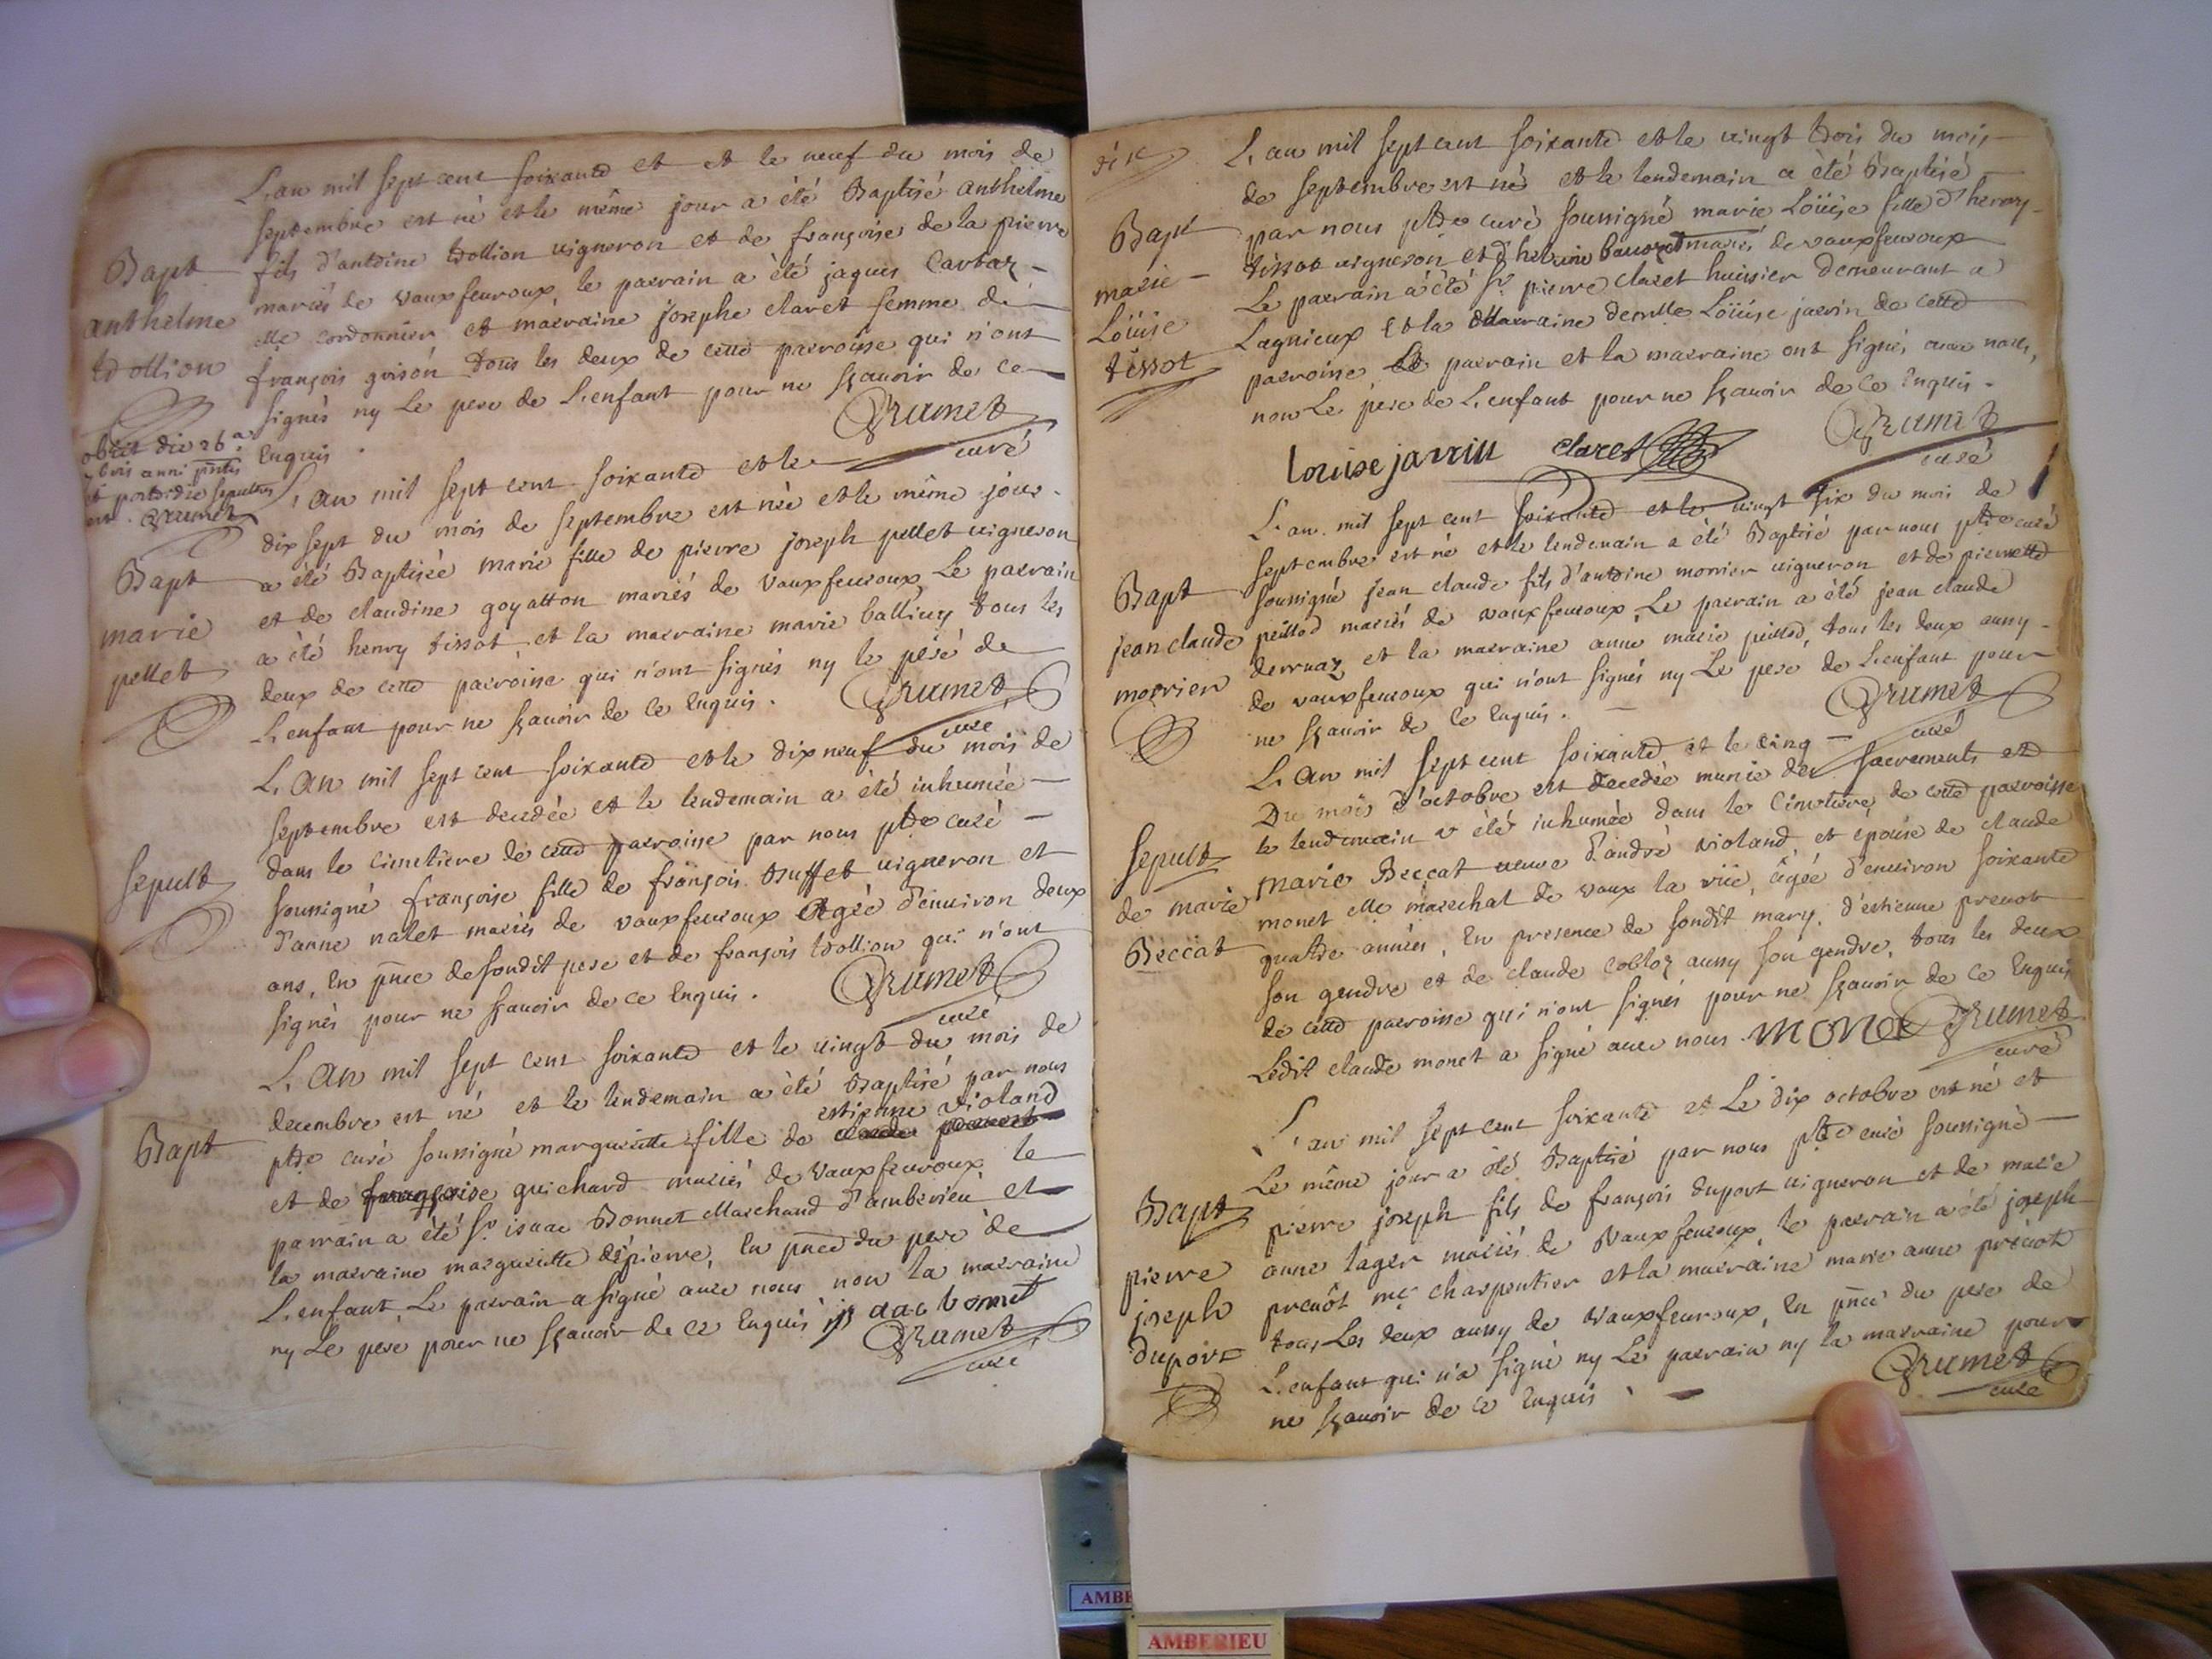 L'an mil sept cent soixante et et le neuf du mois de
septembre est né et le même jour a été Baptisé anthelme
fils d'antoine trollion vigneron et de françoise de la pierre
mariés de vauxfevroux, le parrain a été jaques Carbaz
Me cordonnier et marraine josephe claret femme de
françois grisón tous les deux de cette parroisse qui n'ont
signés ny Le pere de L'enfant pour ne sçavoir de ce
Enquis.
Grumet
curé
Bapt
anthelme
trollion
obiit die 26a
bris anni pntis
et postridie sepultus
est. Grumet
L'an mil sept cent soixante et le
dix sept du mois de septembre est née et le même jour
a été Baptisée marie fille de pierre joseph pellet vigneron
et de claudine goyatton mariés de vauxfevroux, Le parrain
a été henry tissot et la marraine marie balliuy tous les
deux de cette parroisse qui n'ont signés ny le pere de
L'enfant pour ne sçavoir de ce Enquis.
Grumet
curé
Bapt
marie
pellet
L'An mil sept cent soixante et le dix neuf du mois de
septembre est decedée et le lendemain a été inhumée
dans le cimetiere de cette parroisse par nous ptre curé
soussigné françoise fille de françois truffet vigneron et
d'anne nalet mariés de vauxfevroux agée d'environ deux
ans, En pnce desondit pere et de françois trollion qui n'ont
signés pour ne sçavoir de ce Enquis.
Grumet
curé
sepult
L'An mil sept cent soixante et le vingt du mois de
decembre est né et le lendemain a été Baptisé par nous
ptre curé soussigné margueritte fille de estienne violand
et de françoise guichard mariés de vauxfevroux le
parrain a été sr. isaac Bonnet Marchand d'amberieu et
la marraine margueritte dépierre, En pnce du pere de
L'enfant, Le parrain a signé avec nous non la marraine
ny Le pere pour ne sçavoir de ce Enquis isaac bonnet
Grumet
curé
Bapt
dix
L'an mil sept cent soixante et le vingt trois du mois
de septembre est née et le lendemain a été Baptisé
par nous ptre curé soussigné marie Loüise fille d'henry
tissot vigneron et d'helaine mariés de vauxfevroux
Le parrain a été sr. pierre claret huissier demeurant a
Lagnieux Et la Marraine demlle Loüise jarrin de cette
parroisse Le parrain et la marraine ont signés avec nous,
non Le pere de L'enfant pour ne sçavoir de ce Enquis.
Louise jarrin claret Grumet
curé
Bapt
marie
Loüise
tissot
L'an mil sept cent soixante et le vingt six du mois de
septembre est né et le lendemain a été Baptisé par nous ptre curé
soussigné jean claude fils d'antoine morrier vigneron et de pierrette
peillod mariés de vauxfevroux, Le parrain a été jean claude
derruaz et la marraine anne marie peillod, tous les deux aussy
de vauxfevroux qui n'ont signés ny Le pere de L'enfant pour
ne sçavoir de ce Enquis.
Grumet
curé
Bapt
jean claude
morrier
L'An mil sept cent soixante et le cinq
Du mois d'octobre est decedée munie des sacrements et
le lendemain a été inhumée dans le Cimetiere de cette parroisse
marie Beccat veuve d'andré violand, et épouse de claude
monet Me marechal de vaux la ville, âgée d'environ soixante
quatre années, En presence de sondit mary, d'estienne prevot
son gendre et de claude cobloz aussy son gendre, tous les deux
de cette parroisse qui n'ont signés pour ne sçavoir de ce Enquis
Ledit claude monet a signé avec nous. MONet Grumet
curé
sepult
de marie
Beccat
L'an mil sept cent soixante et Le dix octobre est né et
Le même jour a été Baptisé par nous ptre curé soussigné
pierre joseph fils de françois duport vigneron et de marie
anne lager mariés de Vauxfevroux, le parrain a été joseph
prevôt me charpentier et la marraine marie anne prévot
tous Les deux aussy de Vauxfevroux, En pnce du pere de
L'enfant qui n'a signé ny Le parrain ny la marraine pour
ne sçavoir de ce Enquis
Grumet
curé
Bapt
pierre
joseph
duport
AMBE
AMBERIEU